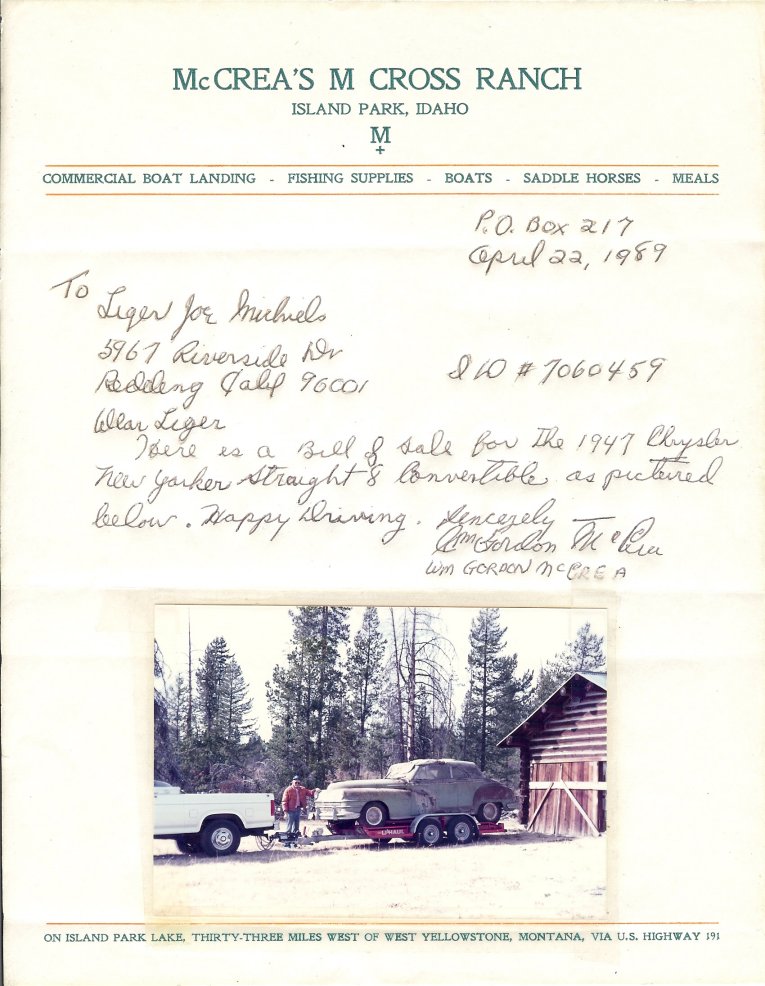 McCREA'S M CROSS RANCH
ISLAND PARK, IDAHO
M
+
COMMERCIAL BOAT LANDING - FISHING SUPPLIES - BOATS - SADDLE HORSES - MEALS
P.O. Box 217
April 22, 1989
To
Liger Joe Michiels
5967 Riverside Dr
Redding Calif 96001
ID # 7060459
Dear Liger
Here is a Bill of sale for the 1947 Chrysler
New Yorker Straight 8 Convertible as pictured
below. Happy Driving. Sincerely
Wm Gordon McCrea
WM GORDON McCREA
U-HAUL
ON ISLAND PARK LAKE, THIRTY-THREE MILES WEST OF WEST YELLOWSTONE, MONTANA, VIA U.S. HIGHWAY 191